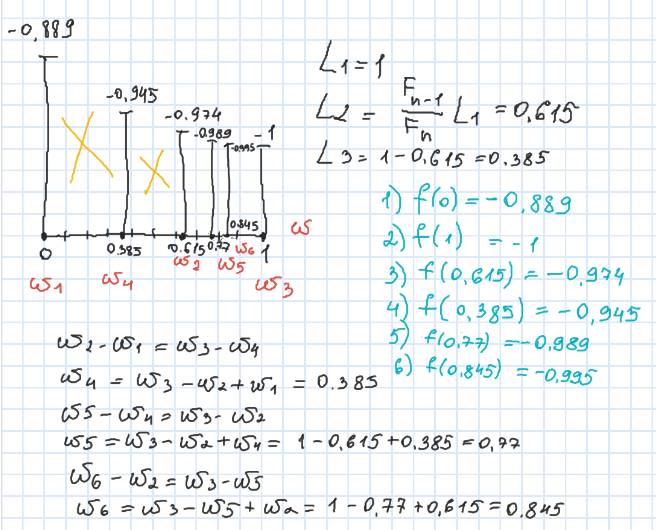 -0,889
-0,945
-0.974
-0.989
-0.995
-1
0.845
0
0.385
0.615
0,77
1
ω
ω1
ω4
ω2
ω5
ω6
ω3
L1=1
L2 = Fn-1/Fn L1 = 0,615
L3 = 1-0.615=0.385
1) f(0) = -0,889
2) f(1) = -1
3) f(0,615) = -0,974
4) f(0,385) = -0,945
5) f(0,77) = -0,989
6) f(0,845) = -0,995
ω2-ω1 = ω3-ω4
ω4 = ω3-ω2+ω1 = 0.385
ω5-ω4=ω3-ω2
ω5=ω3-ω2+ω4= 1-0,615+0.385=0,77
ω6-ω2=ω3-ω5
ω6 = ω3-ω5+ω2= 1-0.77+0,615=0.845